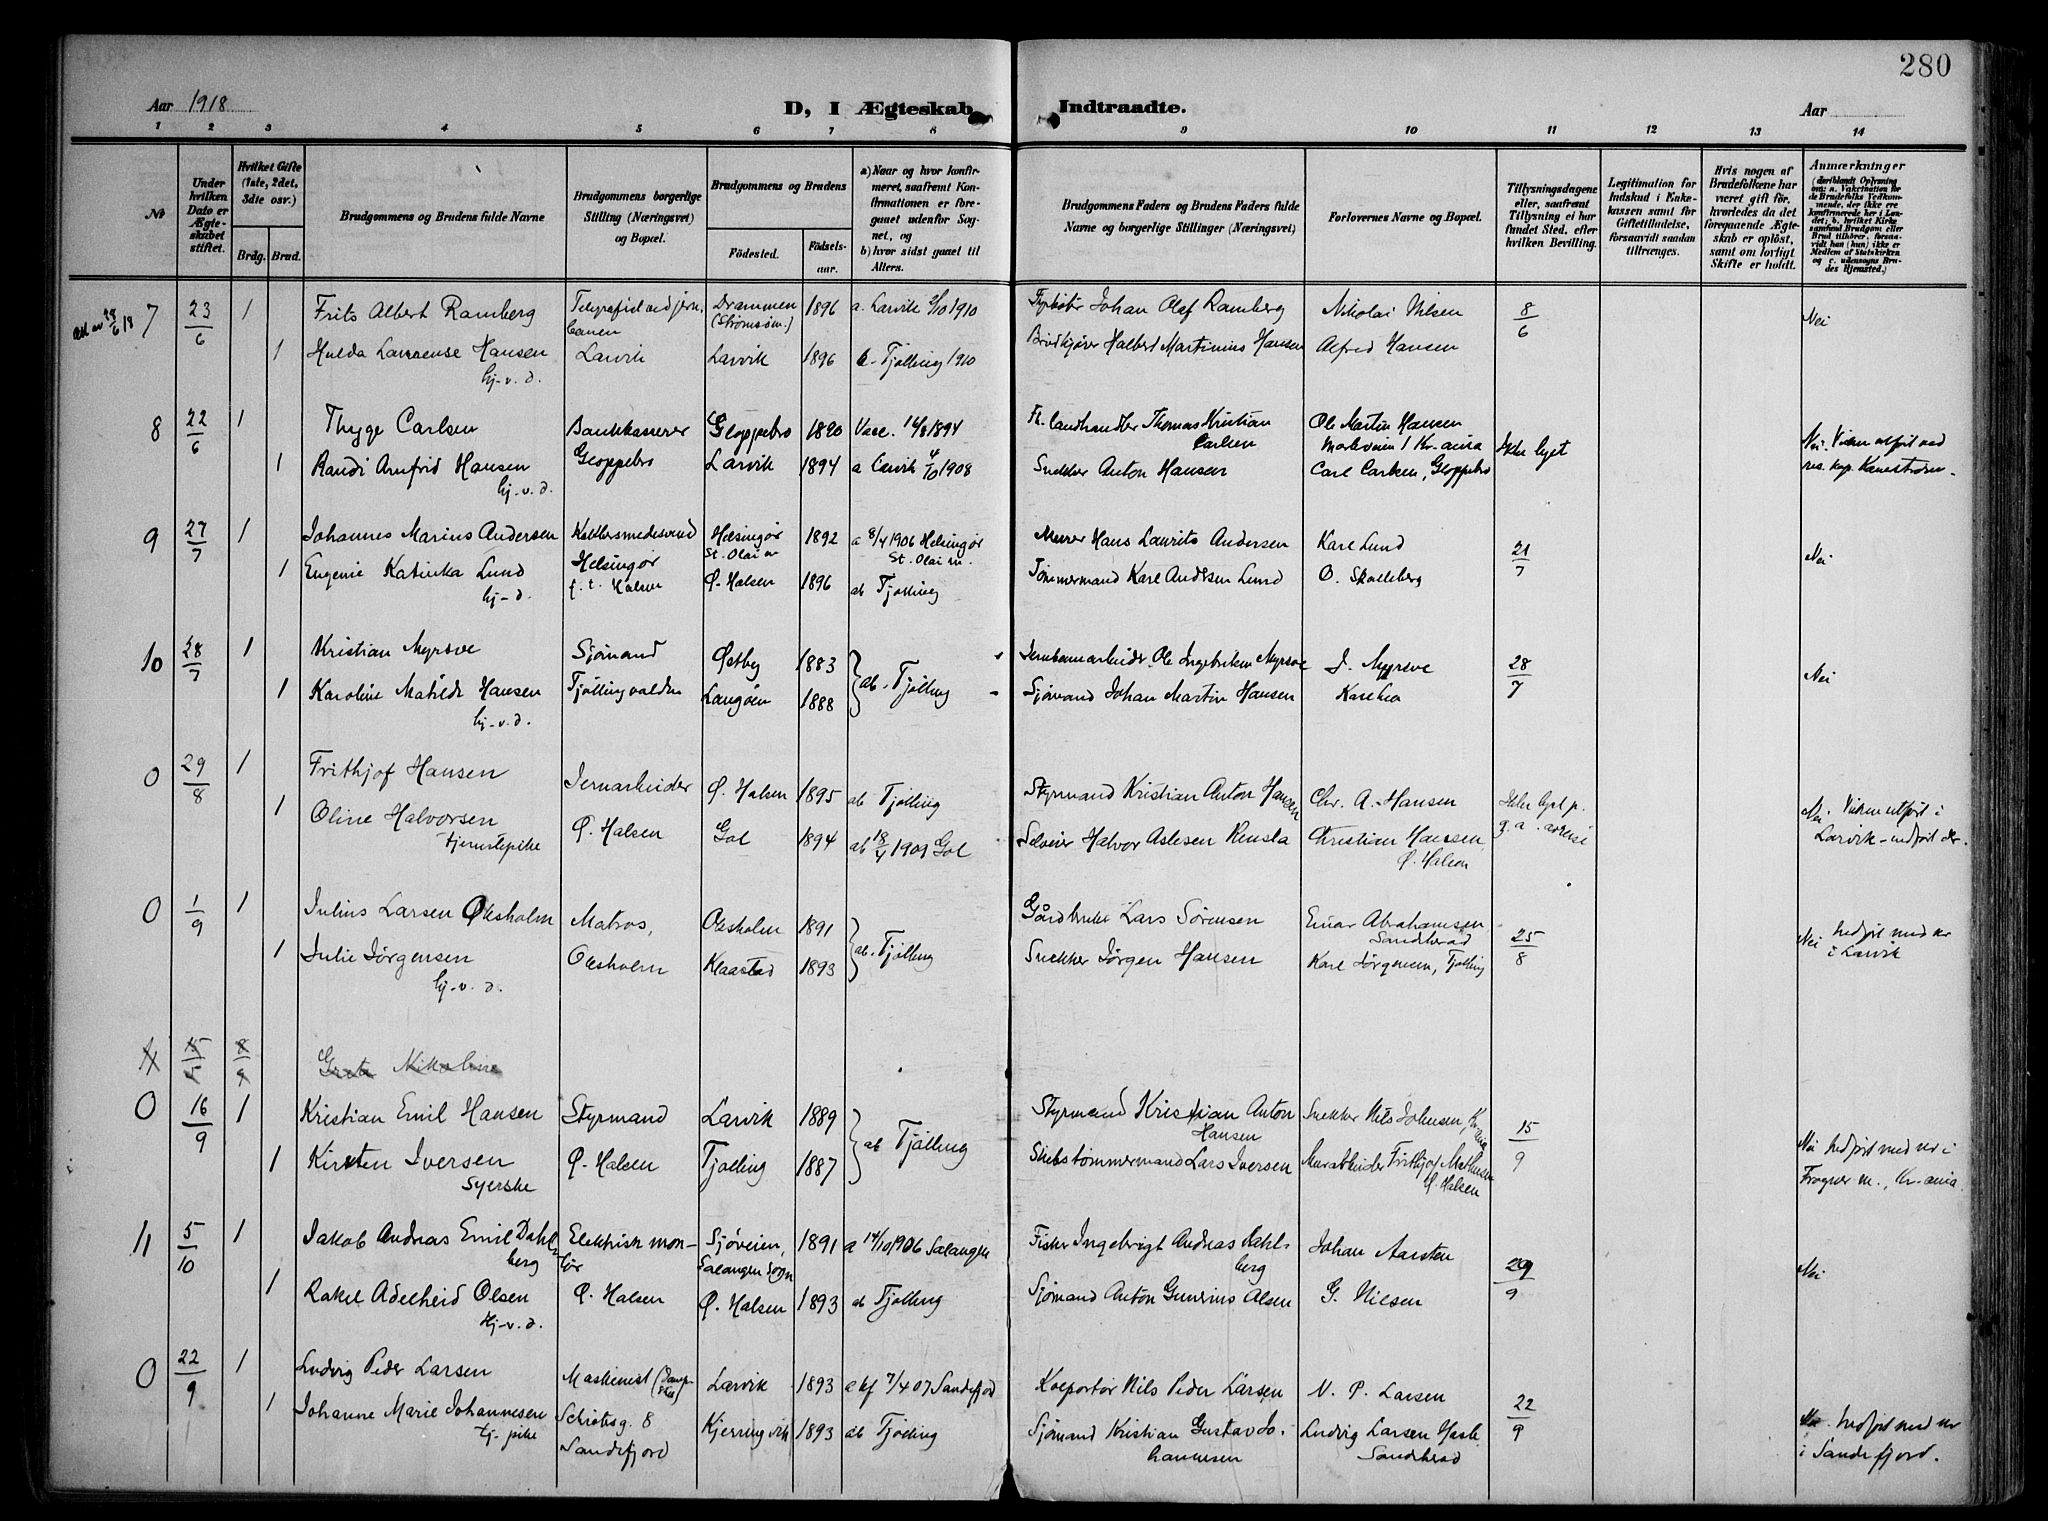 280
Aar 1918
D, I Ægteskab Indtraadte.
Aar
1 2 3 4 5 6 7 8 9 10 11 12 13 14
No
Under hvilken Dato er Ægteskabet stiftet.
Hvilket Gifte (1ste, 2det, 3die osv.)
Brdg. Brud.
Brudgommens og Brudens fulde Navne
Brudgommens borgerlige Stilling (Næringsvei) og Bopæl.
Brudgommens og Brudens
Fødested. Fødselsaar.
a) Naar og hvor konfirmeret, saafremt Konfirmationen er foregaaet udenfor Sognet, og
b) hvor sidst gaaet til Alters.
Brudgommens Faders og Brudens Faders fulde Navne og borgerlige Stillinger (Næringsvei)
Forlovernes Navne og Bopæl.
Tillysningsdagene eller, saafremt Tillysning ei har fundet Sted, efter hvilken Bevilling.
Legitimation for Indskud i Enkekassen samt for Giftetilladelse, forsaavidt saadan tiltrænges.
Hvis nogen af Brudefolkene har været gift før, hvorledes da det foregaaende Ægteskab er opløst, samt om lovligt Skifte er holdt.
Anmærkninger
(deriblandt Oplysning om: a. Vakcination for de Brudefolks Vedkommende, der ikke ere konfirmerede her i Landet; b. hvilket Kirkesamfund Brudgom eller Brud tilhører, forsaavidt han (hun) ikke er Medlem af Statskirken og c. udensogns Brudes Hjemsted.)
7 23/6 1 Frits Albert Ramberg Telegrafist ved jernbanen Drammen (Strømsøm.) 1896 a. Larvik 2/10 1910 Johan Olaf Ramberg Nikolai Nilsen 8/6 Nei
1 Hulda Laurense Hansen Larvik Larvik 1896 Tjølling 1910 Brødkjører Halbert Martinius Hansen Alfred Hansen
hj.v.d.
8 22/6 1 Thyge Carlsen Bankkasserer Gloppebro 1890 Vacc. 14/8 1894 Fh. landhandler Thomas Kristian Carlsen Ole Martin Hansen Kr-ania Ikke lyst
1 Randi Arnfrid Hansen Gloppebro Larvik 1894 a Larvik 4/10 1908 Snekker Anton Hansen Carl Carlsen, Gloppebro
hj.v.d.
Nei. Vielsen utført ved res. kap. Kanestrøm.
9 27/7 1 Johannes Marius Andersen Kobbersmedesvend Helsingør St. Olai m 1892 a 8/4 1906 Helsingør St. Olai m. Murer Hans Laurits Andersen Karl Lund 21/7 Nei
1 Eugenie Katinka Lund Helsingør f.t. Halsen Ø. Halsen 1896 ab Tjølling Tømmermand Karl Andersen Lund O. Skalleberg
hj-d.
10 28/7 1 Kristian Myrsve Sjømand Østby 1883 ab. Tjølling Jernbanearbeider Ole Ingebretsen Myrsve J. Myrsve 28/7 Nei
1 Karoline Matilde Hansen Tjøllingvolden Langøen 1888 Sjømand Johan Martin Hansen
hj.v.d.
0 29/8 1 Frithjof Hansen Jernarbeider Ø. Halsen 1895 ab Tjølling Styrmand Kristian Anton Hansen Chr. A. Hansen Ikke lyst p. g. a.
1 Oline Halvorsen Ø. Halsen Gol 1894 ab 18/4 1909 Gol Selveier Halvor Aslesen Christian Hansen, Ø. Halsen
Tjenestepike
Nei. Vielsen utført i Larvik - indført der.
0 1/9 1 Julius Larsen Oksholm Matros, Oksholm 1891 ab. Tjølling Gårdbruker Lars Sørensen Einar Abrahamsen Sandherad 25/8
1 Julie Jørgensen Oksholm Klaastad 1893 Snekker Jørgen Hansen Karl Jørgensen, Tjølling
hj-v.d.
Nei Indført med nr i Larvik
Greta Nikoline
0 16/9 1 Kristian Emil Hansen Styrmand Larvik 1889 ab Tjølling Styrmand Kristian Anton Hansen Snekker Nils Johnsen, Kr.ania 15/9
1 Kirsten Iversen Ø. Halsen Tjølling 1887 Skibstømmermand Lars Iversen Murarbeider Frithjof Mathisen Ø. Halsen
Syerske
Nei Indført med nr i Frogner m., Kr-ania
11 5/10 1 Jakob Andreas Emil Dahlberg Elektrisk montør Sjøveien, Salangen sogn 1891 a 14/10 1906 Salangen Fisker Ingebrigt Andreas Dahlberg Johan Aarsten 29/9 Nei
1 Rakel Adelheid Olsen Ø. Halsen Ø. Halsen 1893 ab Tjølling Sjømand Anton Gunerius Olsen G. Nilsen
Hj-v.d.
0 22/9 1 Ludvig Peder Larsen Maskinist Larvik 1893 a kf 7/4 07 Sandefjord Kolportør Nils Peder Larsen N. P. Larsen 22/9
1 Johanne Marie Johannesen Schiøtsg. 8 Sandefjord Kjerringvik 1893 ab Tjølling Sjømand Kristian Gustav Johannesen Ludvig Larsen Hasle Sandherad
tj-pike
Nei. Indført med nr i Sandefjord.